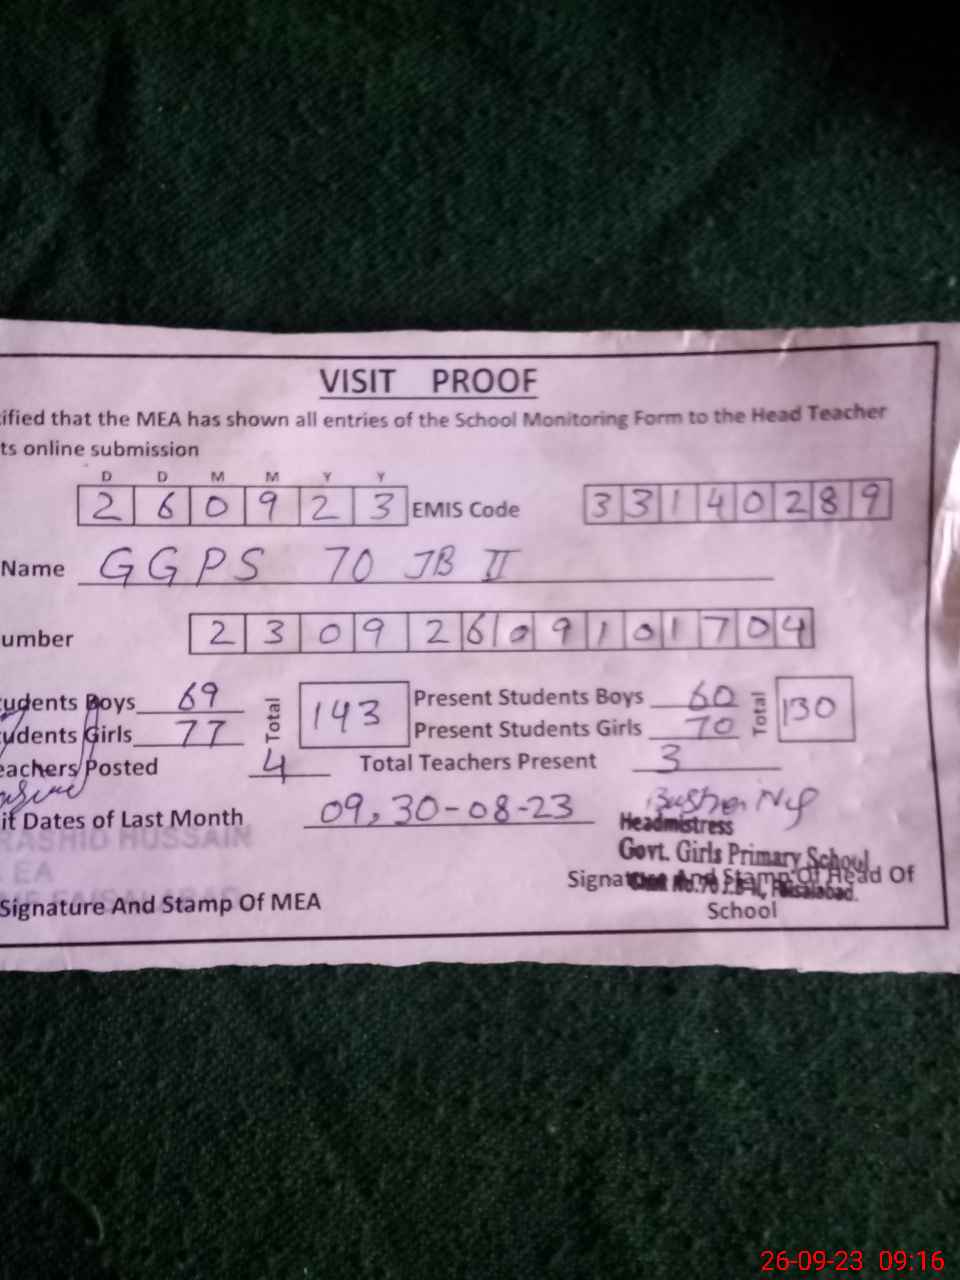 VISIT PROOF
ified that the MEA has shown all entries of the School Monitoring Form to the Head Teacher
ts online submission
D D M M Y Y
2 6 0 9 2 3 EMIS Code 3 3 1 4 0 2 8 9
Name GGPS 70 JB II
umber 2 3 0 9 2 6 0 9 1 0 1 7 0 4
udents Boys 69 Total 143 Present Students Boys 60 Total 130
udents Girls 77 Present Students Girls 70
eachers Posted 4 Total Teachers Present 3
it Dates of Last Month 09, 30-08-23
Headmistress
RASHID HUSSAIN
Govt. Girls Primary School
EA
Faisalabad.
Signature And Stamp Of MEA
Signature And Stamp Of Head Of
School
26-09-23 09:16